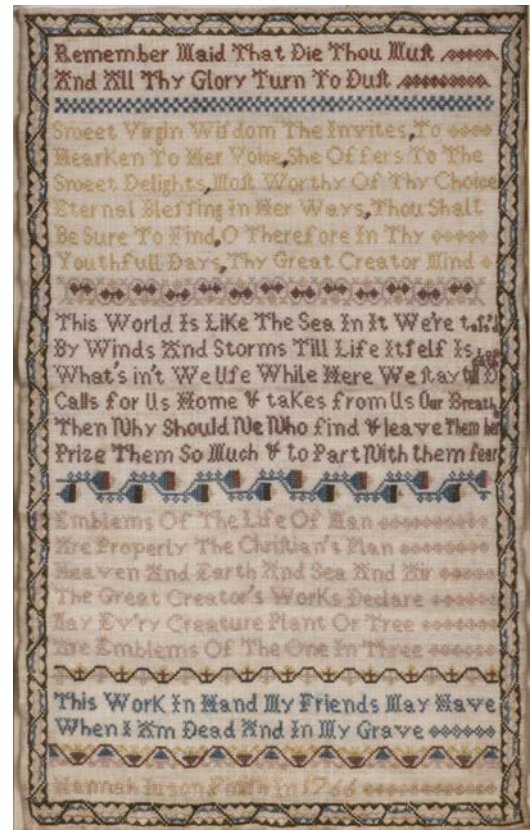 Remember Maid That Die Thou Muſt
And All Thy Glory Turn To Duſt
Sweet Virgin Wiſdom The Invites, To
HearKen To Her Voice, She Offers To The
Sweet Delights, Moſt Worthy Of Thy Choice
Eternal Bleſſing In Her Ways, Thou Shalt
Be Sure To Find, O Therefore In Thy
Youthfull Days, Thy Great Creator Mind
This World Is LiKe The Sea In It We're toſs'd
By Winds And Storms Till Life Itſelf Is
What's in't We Uſe While Here We ſtay till
Calls for Us Home & taKes from Us Our Breath
Then Why Should We Who find & leave Them her
Prize Them So Much & to Part With them fear
Emblems Of The Life Of Man
Are Properly The Chriſtian's Plan
Heaven And Earth And Sea And Air
The Great Creator's WorKs Declare
May Ev'ry Creature Plant Or Tree
Are Emblems Of The One In Three
This WorK In Hand My Friends May Have
When I Am Dead And In My Grave
Hannah In 1766